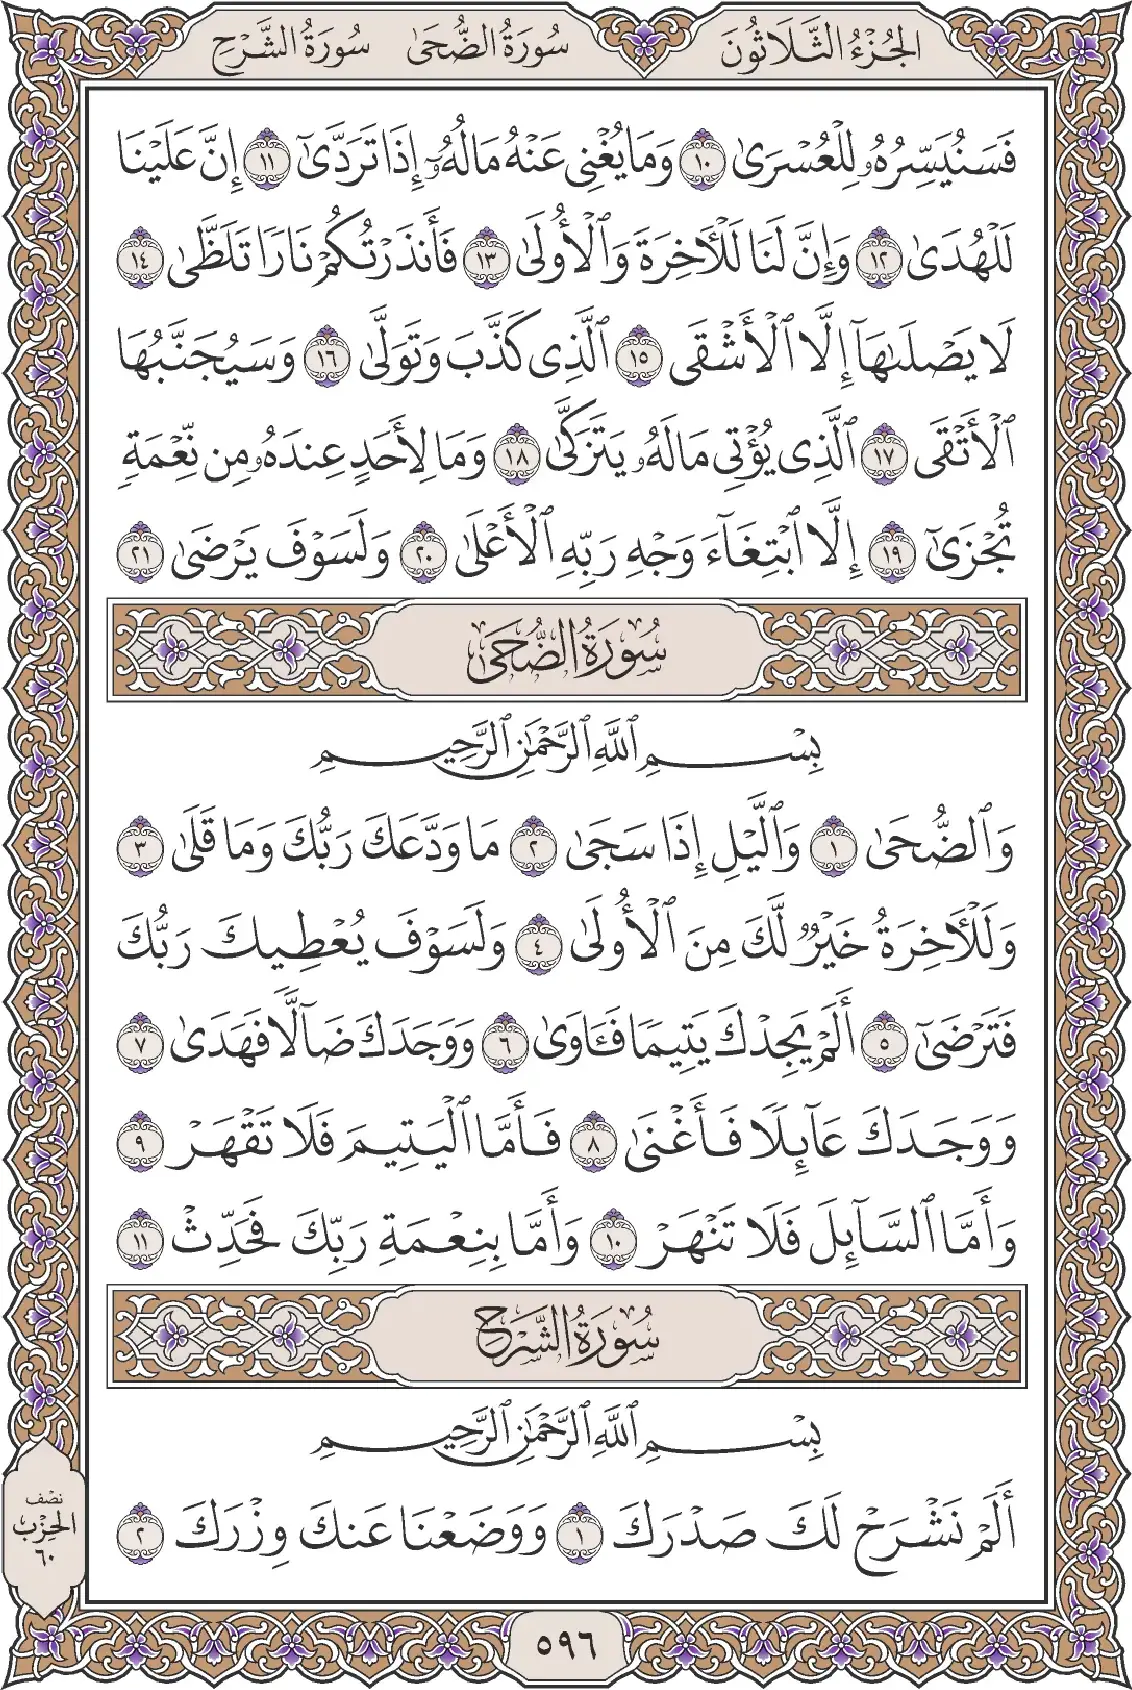 الجُزْءُ الثَّلَاثُونَ سُورَةُ الضُّحَىٰ سُورَةُ الشَّرْحِ
فَسَنُيَسِّرُهُۥ لِلْعُسْرَىٰ ١٠ وَمَا يُغْنِى عَنْهُ مَالُهُۥٓ إِذَا تَرَدَّىٰٓ ١١ إِنَّ عَلَيْنَا
لَلْهُدَىٰ ١٢ وَإِنَّ لَنَا لَلْأَخِرَةَ وَٱلْأُولَىٰ ١٣ فَأَنذَرْتُكُمْ نَارًا تَلَظَّىٰ ١٤
لَا يَصْلَىٰهَآ إِلَّا ٱلْأَشْقَى ١٥ ٱلَّذِى كَذَّبَ وَتَوَلَّىٰ ١٦ وَسَيُجَنَّبُهَا
ٱلْأَتْقَى ١٧ ٱلَّذِى يُؤْتِى مَالَهُۥ يَتَزَكَّىٰ ١٨ وَمَا لِأَحَدٍ عِندَهُۥ مِن نِّعْمَةٍ
تُجْزَىٰٓ ١٩ إِلَّا ٱبْتِغَآءَ وَجْهِ رَبِّهِ ٱلْأَعْلَىٰ ٢٠ وَلَسَوْفَ يَرْضَىٰ ٢١
سُورَةُ الضُّحَىٰ
بِسْمِ ٱللَّهِ ٱلرَّحْمَٰنِ ٱلرَّحِيمِ
وَٱلضُّحَىٰ ١ وَٱلَّيْلِ إِذَا سَجَىٰ ٢ مَا وَدَّعَكَ رَبُّكَ وَمَا قَلَىٰ ٣
وَلَلْأَخِرَةُ خَيْرٌ لَّكَ مِنَ ٱلْأُولَىٰ ٤ وَلَسَوْفَ يُعْطِيكَ رَبُّكَ
فَتَرْضَىٰٓ ٥ أَلَمْ يَجِدْكَ يَتِيمًا فَـَٔاوَىٰ ٦ وَوَجَدَكَ ضَآلًّا فَهَدَىٰ ٧
وَوَجَدَكَ عَآئِلًا فَأَغْنَىٰ ٨ فَأَمَّا ٱلْيَتِيمَ فَلَا تَقْهَرْ ٩
وَأَمَّا ٱلسَّآئِلَ فَلَا تَنْهَرْ ١٠ وَأَمَّا بِنِعْمَةِ رَبِّكَ فَحَدِّثْ ١١
سُورَةُ الشَّرْحِ
بِسْمِ ٱللَّهِ ٱلرَّحْمَٰنِ ٱلرَّحِيمِ
أَلَمْ نَشْرَحْ لَكَ صَدْرَكَ ١ وَوَضَعْنَا عَنكَ وِزْرَكَ ٢
نصف
الحِزْب
٦٠
٥٩٦